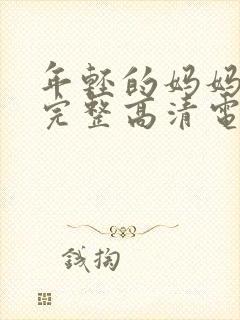 年轻的妈妈
完整高清電
钱掏